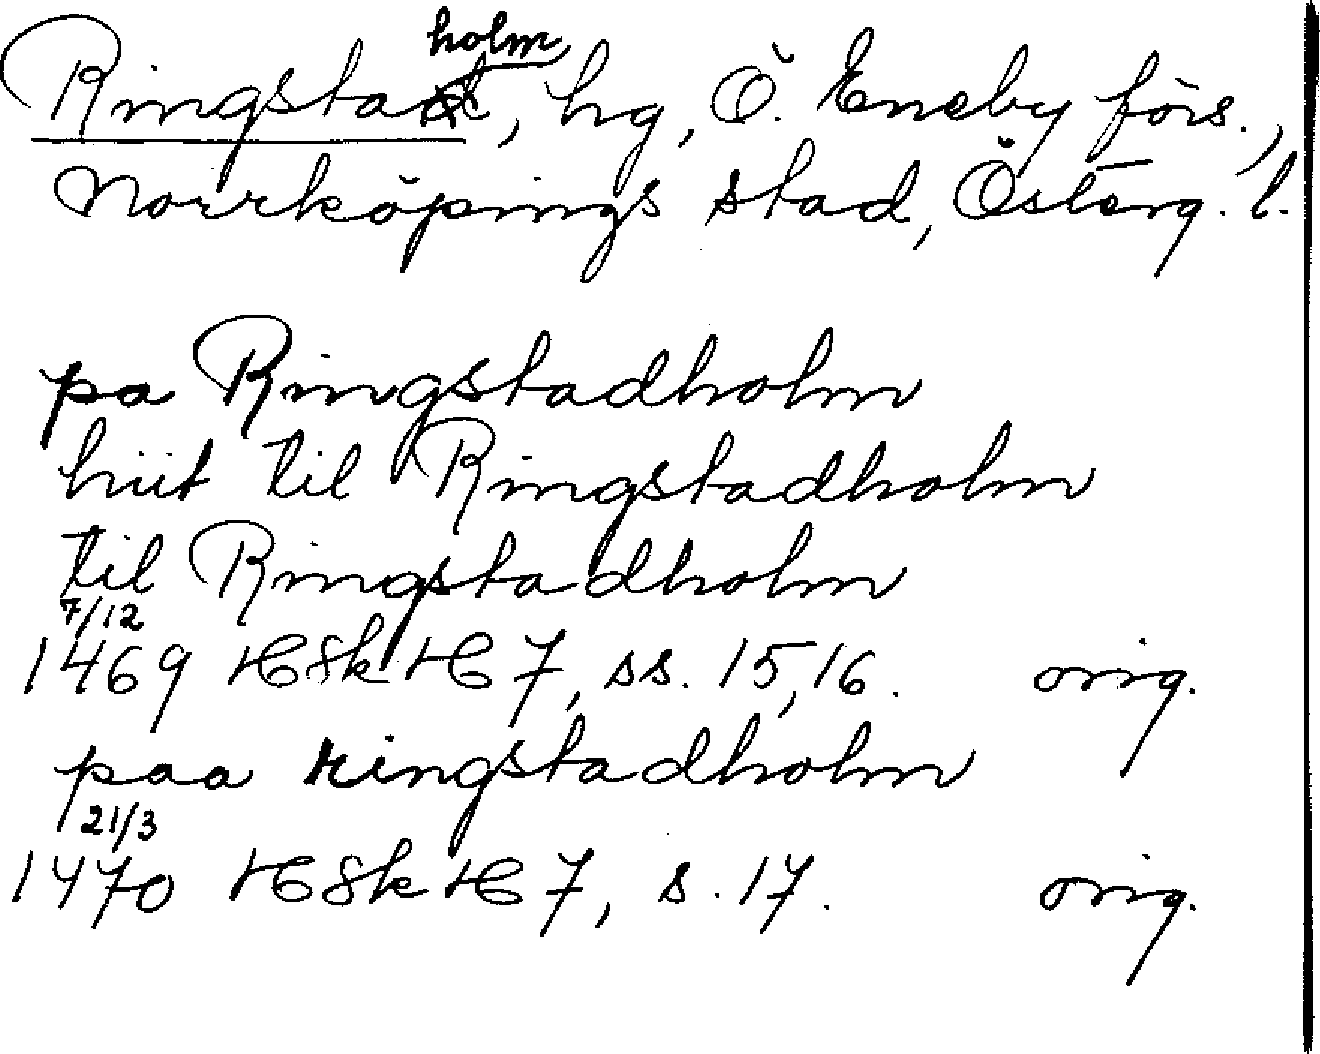 holm
Ringstad, hg, Ö. Eneby förs.,
Norrköpings stad, Österg. l.
pa Ringstadholm
hiit til Ringstadholm
til Ringstadholm
7/12
1469 HSk H 7, ss. 15, 16. orig.
paa Ringstadholm
21/3
1470 HSk H 7, s. 17. orig.